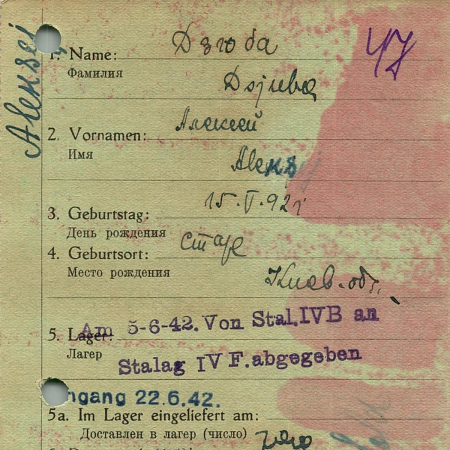 Aleksej
1. Name: Дзюба
Фамилия
Dsjuba
47
2. Vornamen: Алексей
Имя
Aleks
3. Geburtstag: 15.V.921
День рождения
4. Geburtsort: Старе
Место рождения
Киев. обл.
5. Lager: Am 5-6-42. Von Stal.IVB an
Лагер
Stalag IV F. abgegeben
ngang 22.6.42.
5a. Im Lager eingeliefert am:
Доставлен в лагер (число)